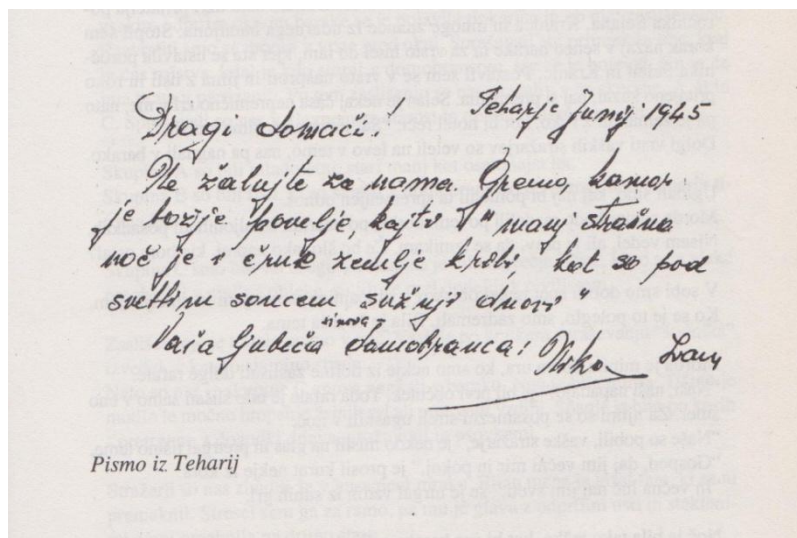 Teharje Junij 1945
Dragi domači!
Ne žalujte za nama. Greva, kamor
je božje povelje, kajti "manj strašna
noč je v črne zemlje krili, kot so pod
svetlim soncem sužnji dnovi"
sinova
Vaša ljubeča domobranca: Mirko Ivan
Pismo iz Teharij